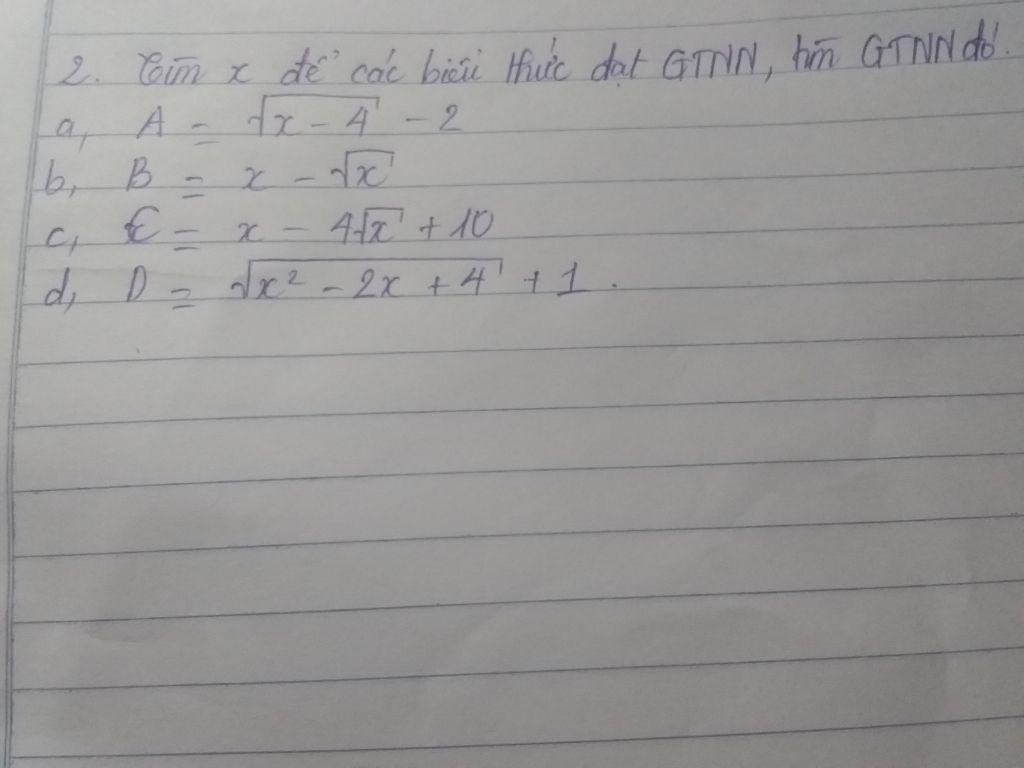 2. Tìm x để các biểu thức đạt GTNN, tìm GTNN đó.
a, A = √(x - 4) - 2
b, B = x - √x
c, C = x - 4√x + 10
d, D = √(x² - 2x + 4) + 1.